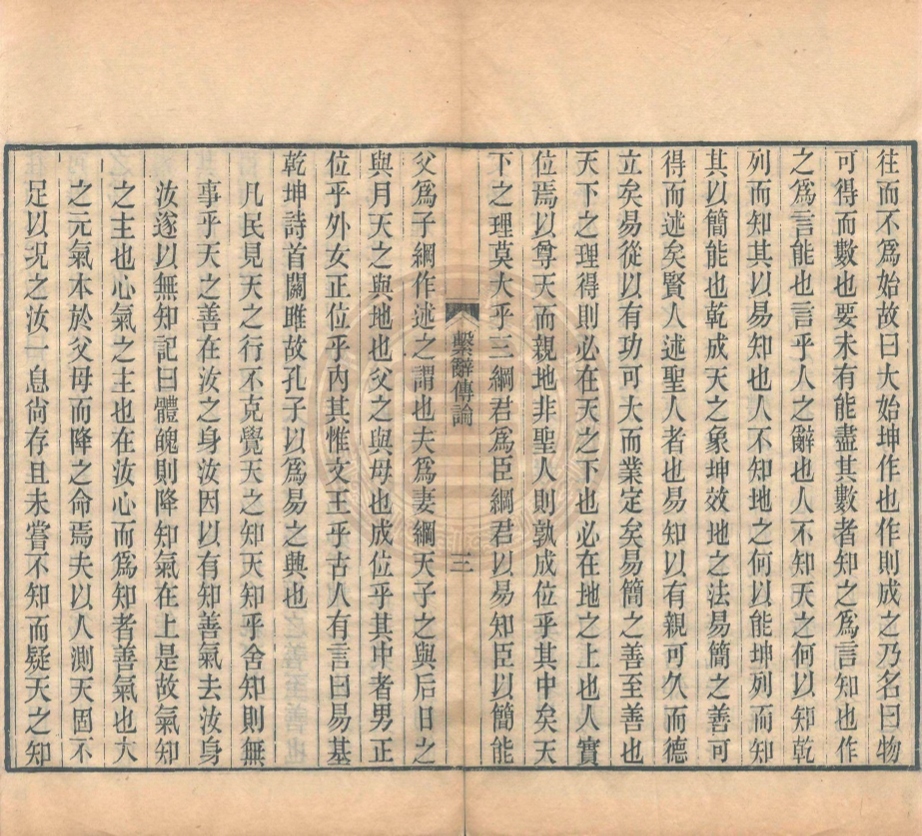 往而不爲始故曰大始坤作也作則成之乃名曰物
可得而數也要未有能盡其數者知之爲言知也作
之爲言能也言乎人之辭也人不知天之何以知乾
列而知其以易知也人不知地之何以能坤列而知
其以簡能也乾成天之象坤效地之法易簡之善可
得而述矣賢人述聖人者也易知以有親可久而德
立矣易從以有功可大而業定矣易簡之善至善也
天下之理得則必在天之下也必在地之上也人實
位焉以尊天而親地非聖人則孰成位乎其中矣天
下之理莫大乎三綱君爲臣綱君以易知臣以簡能
繫辭傳論
三
父爲子綱作述之謂也夫爲妻綱天子之與后日之
與月天之與地也父之與母也成位乎其中者男正
位乎外女正位乎内其惟文王乎古人有言曰易基
乾坤詩首關雎故孔子以爲易之興也
凡民見天之行不克覺天之知天知乎舍知則無
事乎天之善在汝之身汝因以有知善氣去汝身
汝遂以無知記曰體魄則降知氣在上是故氣知
之主也心氣之主也在汝心而爲知者善氣也大
之元氣本於父母而降之命焉夫以人測天固不
足以况之汝一息尙存且未嘗不知而疑天之知